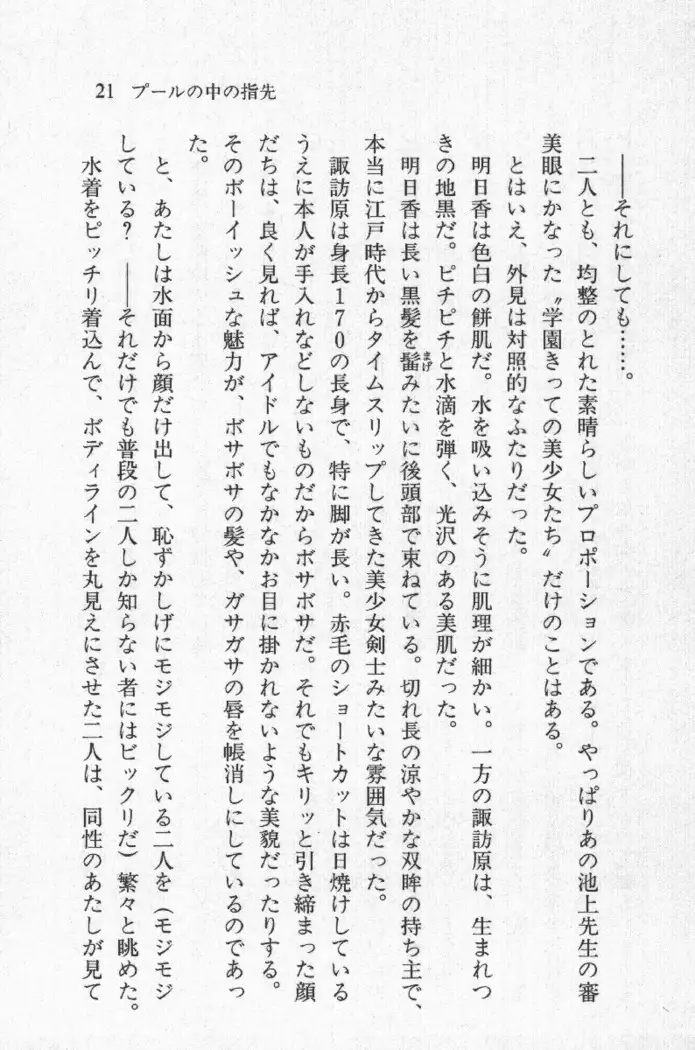 21 プールの中の指先
――それにしても……。
二人とも、均整のとれた素晴らしいプロポーションである。やっぱりあの池上先生の審
美眼にかなった〝学園きっての美少女たち〟だけのことはある。
とはいえ、外見は対照的なふたりだった。
明日香は色白の餅肌だ。水を吸い込みそうに肌理が細かい。一方の諏訪原は、生まれつ
きの地黒だ。ピチピチと水滴を弾く、光沢のある美肌だった。
明日香は長い黒髪を髷みたいに後頭部で束ねている。切れ長の涼やかな双眸の持ち主で、
本当に江戸時代からタイムスリップしてきた美少女剣士みたいな雰囲気だった。
諏訪原は身長170の長身で、特に脚が長い。赤毛のショートカットは日焼けしている
うえに本人が手入れなどしないものだからボサボサだ。それでもキリッと引き締まった顔
だちは、良く見れば、アイドルでもなかなかお目に掛かれないような美貌だったりする。
そのボーイッシュな魅力が、ボサボサの髪や、ガサガサの唇を帳消しにしているのであっ
た。
と、あたしは水面から顔だけ出して、恥ずかしげにモジモジしている二人を(モジモジ
している? ――それだけでも普段の二人しか知らない者にはビックリだ)繁々と眺めた。
水着をピッチリ着込んで、ボディラインを丸見えにさせた二人は、同性のあたしが見て